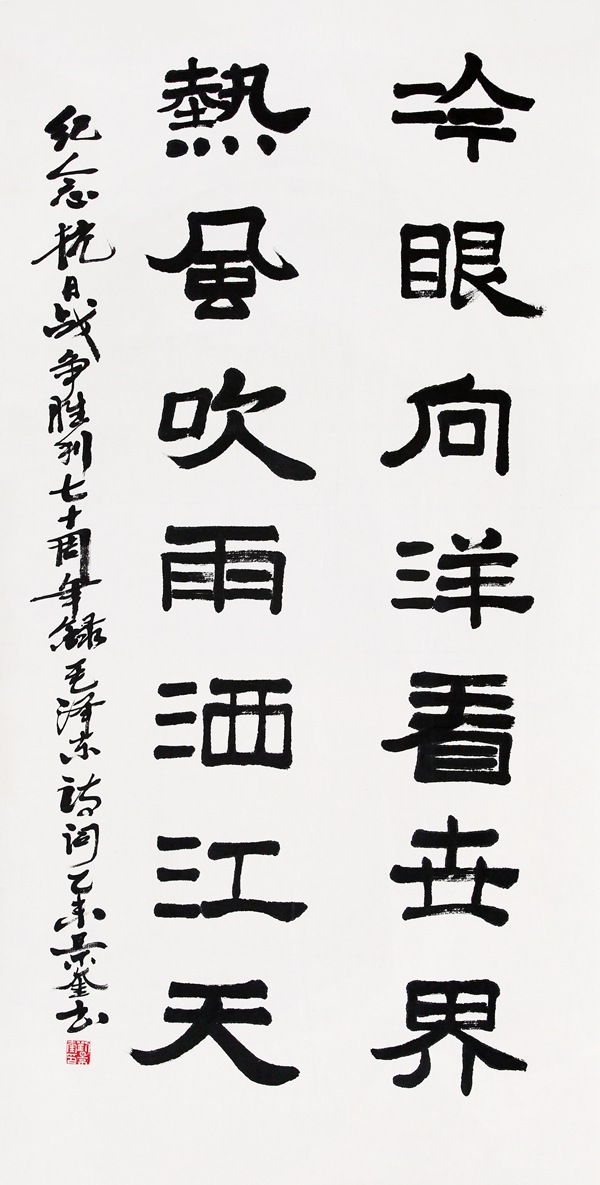 冷眼向洋看世界
熱風吹雨洒江天
纪念抗日战争胜利七十周年録毛泽东诗词乙未景书